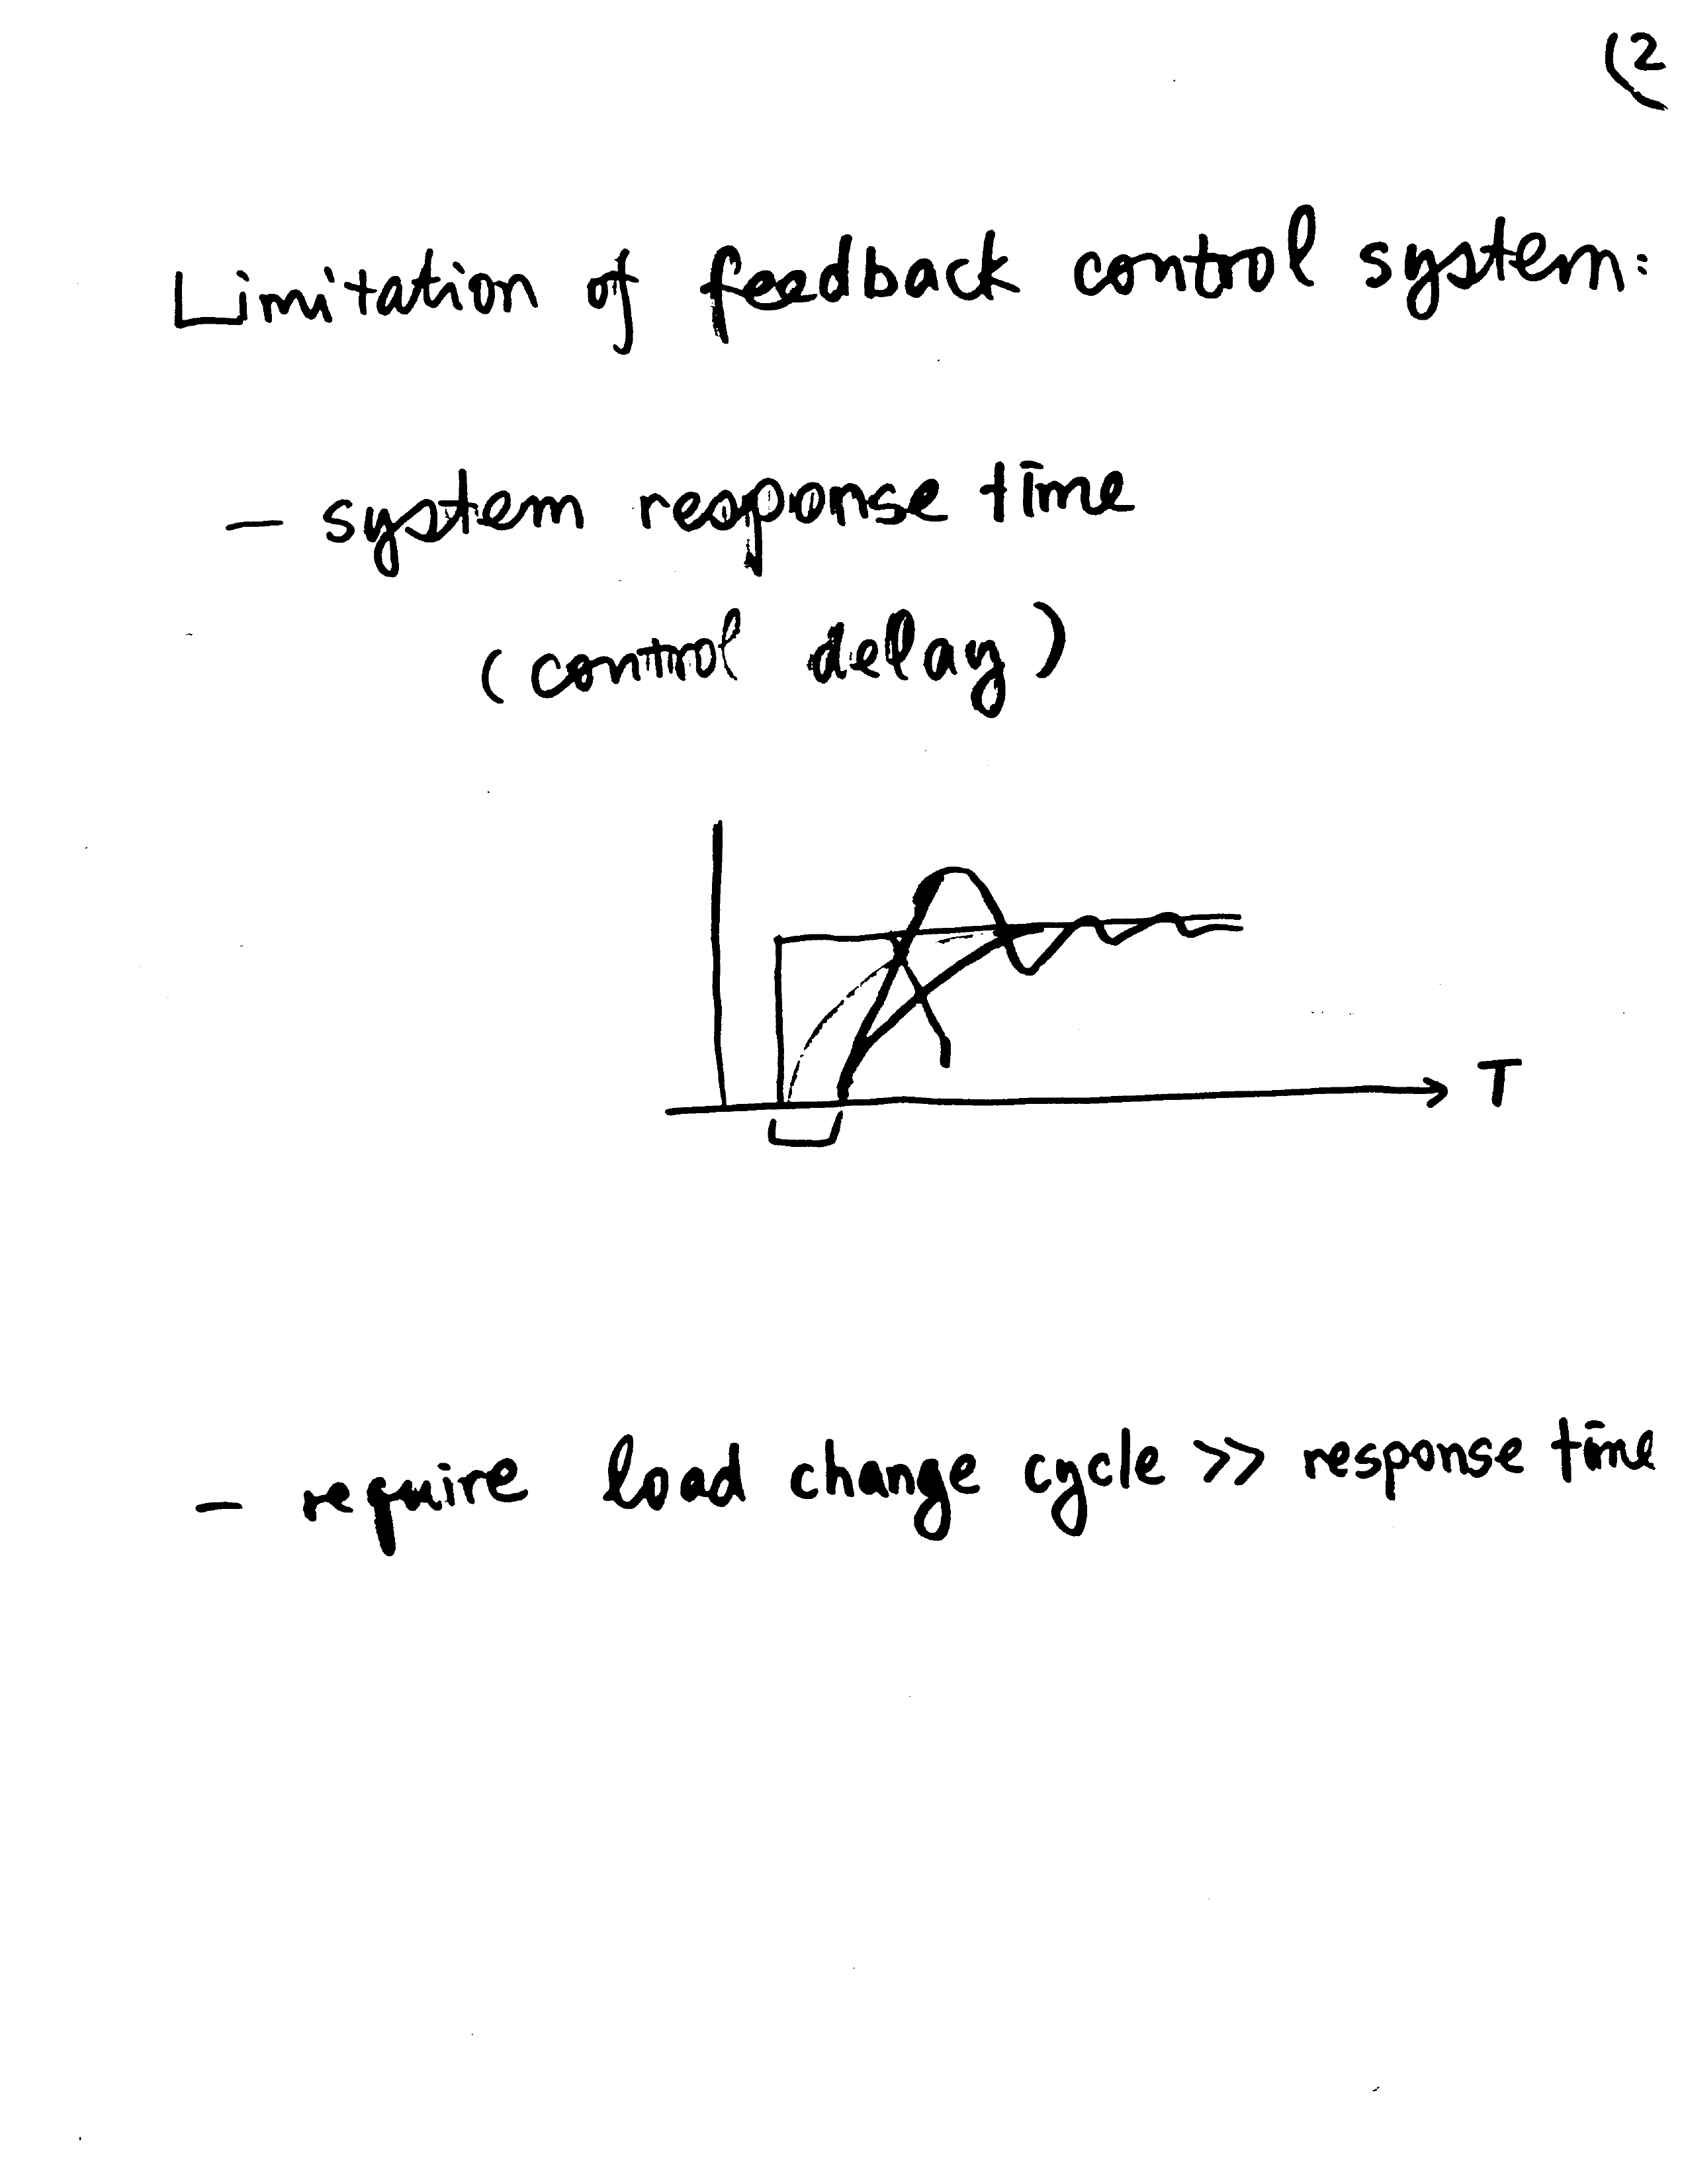 (2
Limitation of feedback control system:
— system response time
(control delay)
T
— require load change cycle >> response time